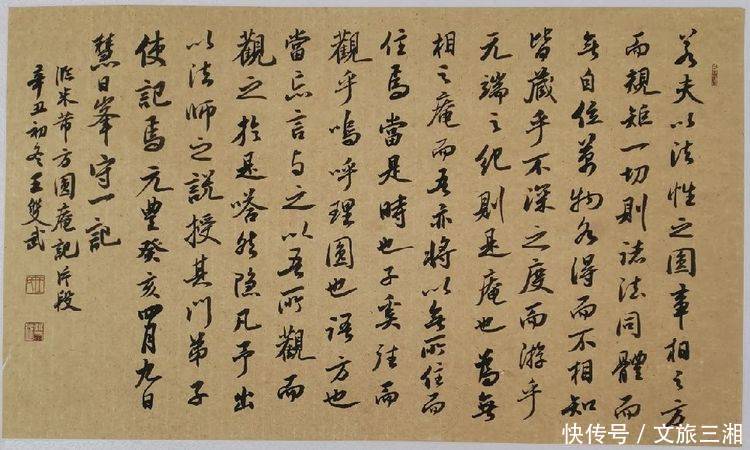 若夫以法性之圓事相之方
而規矩一切則諸法同體而
無自位萬物各得而不相知
皆藏乎不深之度而游乎
无端之紀則是庵也為無
相之庵而吾亦將以無所住而
住焉當是時也子奚往而
觀乎嗚呼理圓也語方也
當忘言与之以吾所觀而
觀之於是嗒然隐几予出
以法師之說授其門弟子
使記焉元豐癸亥四月九日
慧日峯守一記
臨米芾方圓庵記片段
辛丑初冬王雙武
快传号 / 文旅三湘